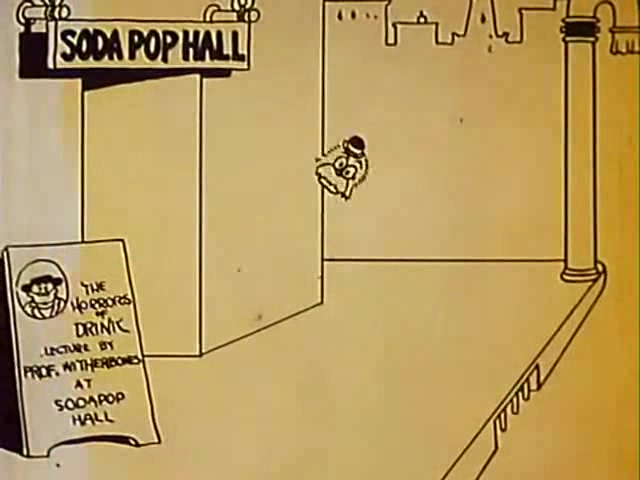 SODA POP HALL
THE
HORRORS
OF
DRINK
LECTURE BY
PROF. WITHERBONES
AT
SODAPOP
HALL